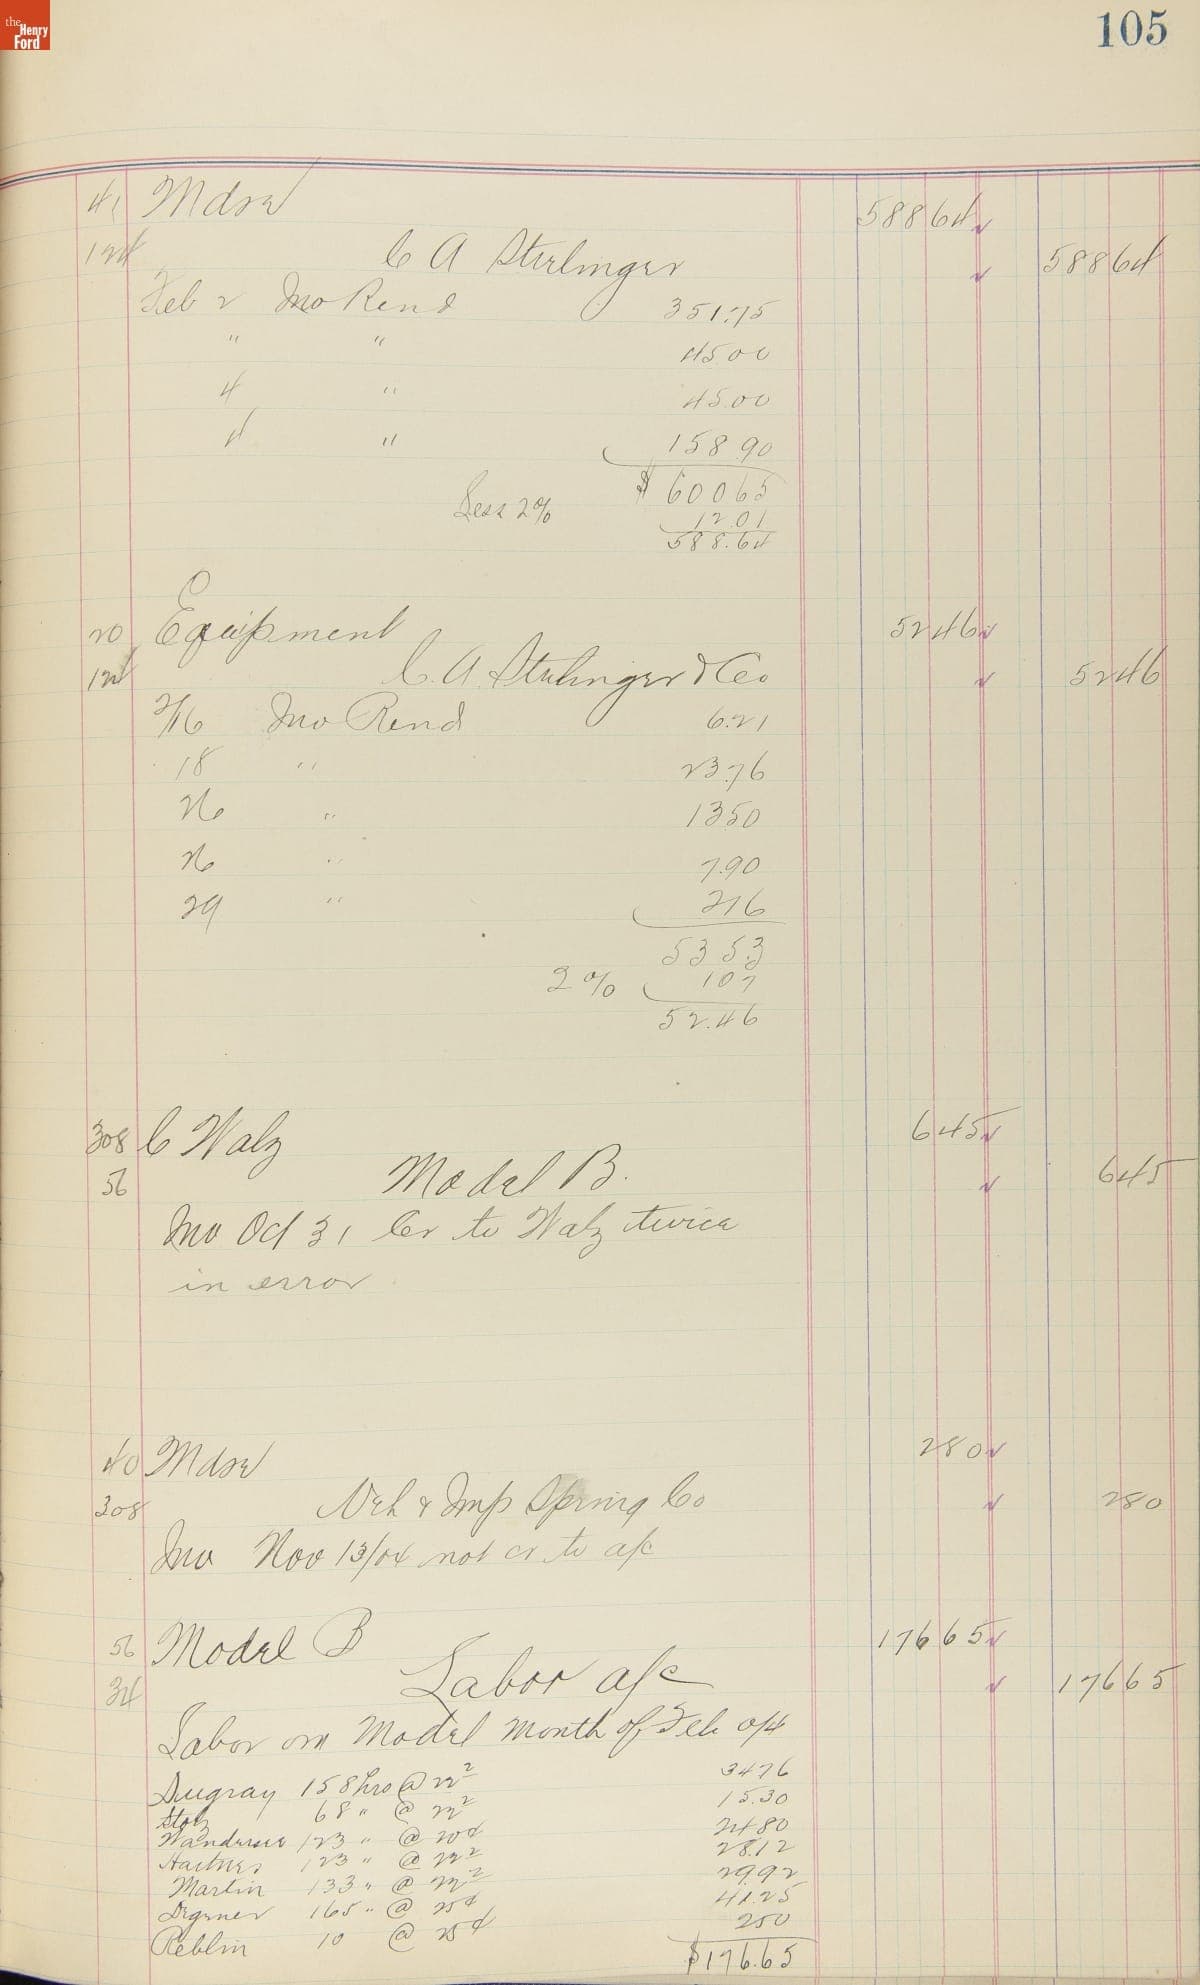 the Henry Ford
105
41 Mdse 588 64
124 C A Sterlinger 588 64
Feb 2 Inv Rend 351.75
" " 45.00
4 " 45.00
4 " 158 90
$ 600 65
Less 2% 12.01
588.64
20 Equipment 52 46
124 C. A. Sterlinger & Co 52 46
2/16 Inv Rend 6.21
18 " 23.76
26 " 13 50
26 " 7.90
29 " 2 16
53 53
2% 1 07
52.46
308 C Walz 6 45
56 Model B. 6 45
Inv Oct 31 Cr to Walz twice
in error
40 Mdse 2 80
308 Veh & Imp Spring Co 2 80
Inv Nov 13/04 not cr to a/c
56 Model B 176 65
34 Labor a/c 176 65
Labor on Model Month of Feb 04
Dugray 158 hrs @ 22² 34 76
Stolz 68 " @ 22² 15.30
123 " @ 20¢ 24 80
Hartner 123 " @ 22² 28.12
Martin 133 " @ 22² 29.92
Degener 165 " @ 25¢ 41.25
Reblin 10 @ 25¢ 2 50
$176.65